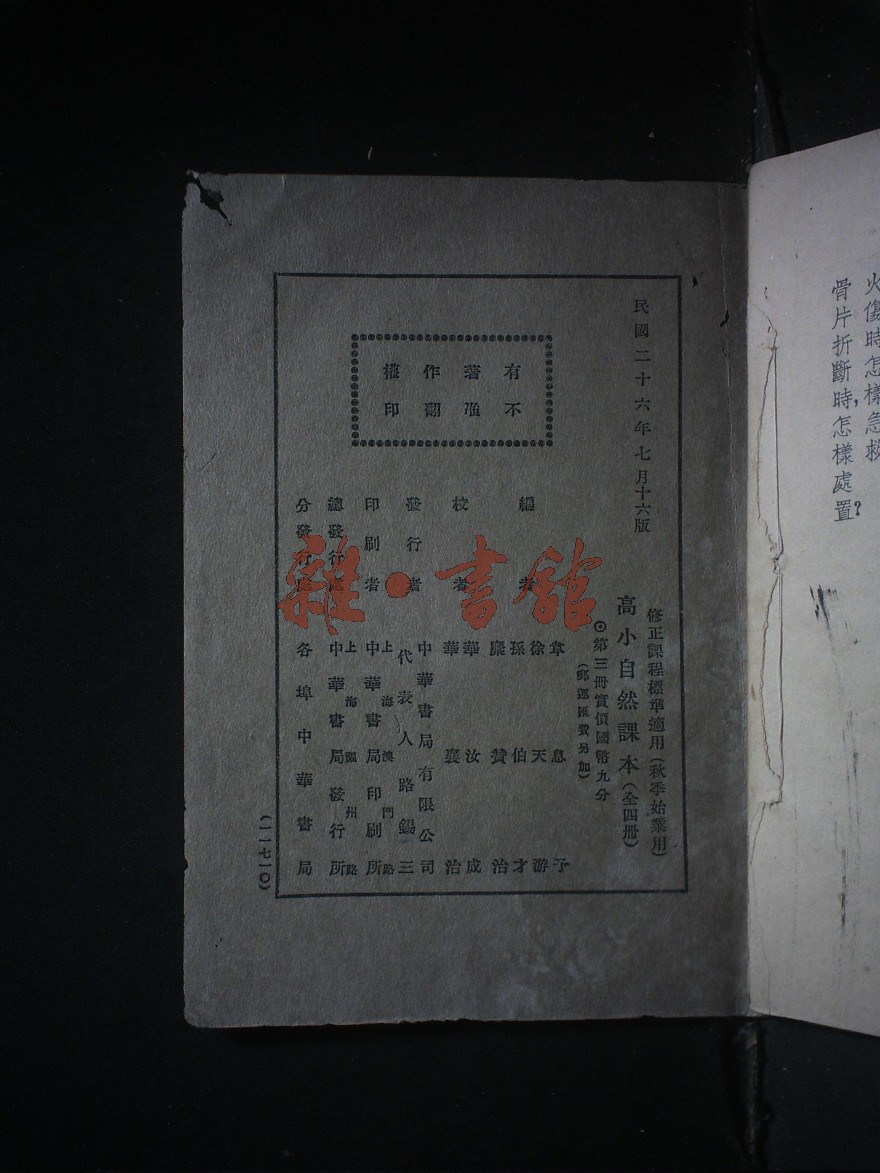 火傷時怎樣急救
骨片折斷時,怎樣處置?
民國二十六年七月十六版
修正課程標準適用(秋季始業用)
高小自然課本(全四冊)
⊙第三冊實價國幣九分
(郵運匯費另加)
有著作權
不准翻印
編者 章息予
徐天游
孫伯才
糜贊治
校者 華汝成
華襄治
發行者 中華書局有限公司
代表人 路錫三
印刷者 上海澳門路
中華書局印刷所
總發行處 上海福州路
中華書局發行所
分發行處 各埠中華書局
(一一七一〇)
雜·書館